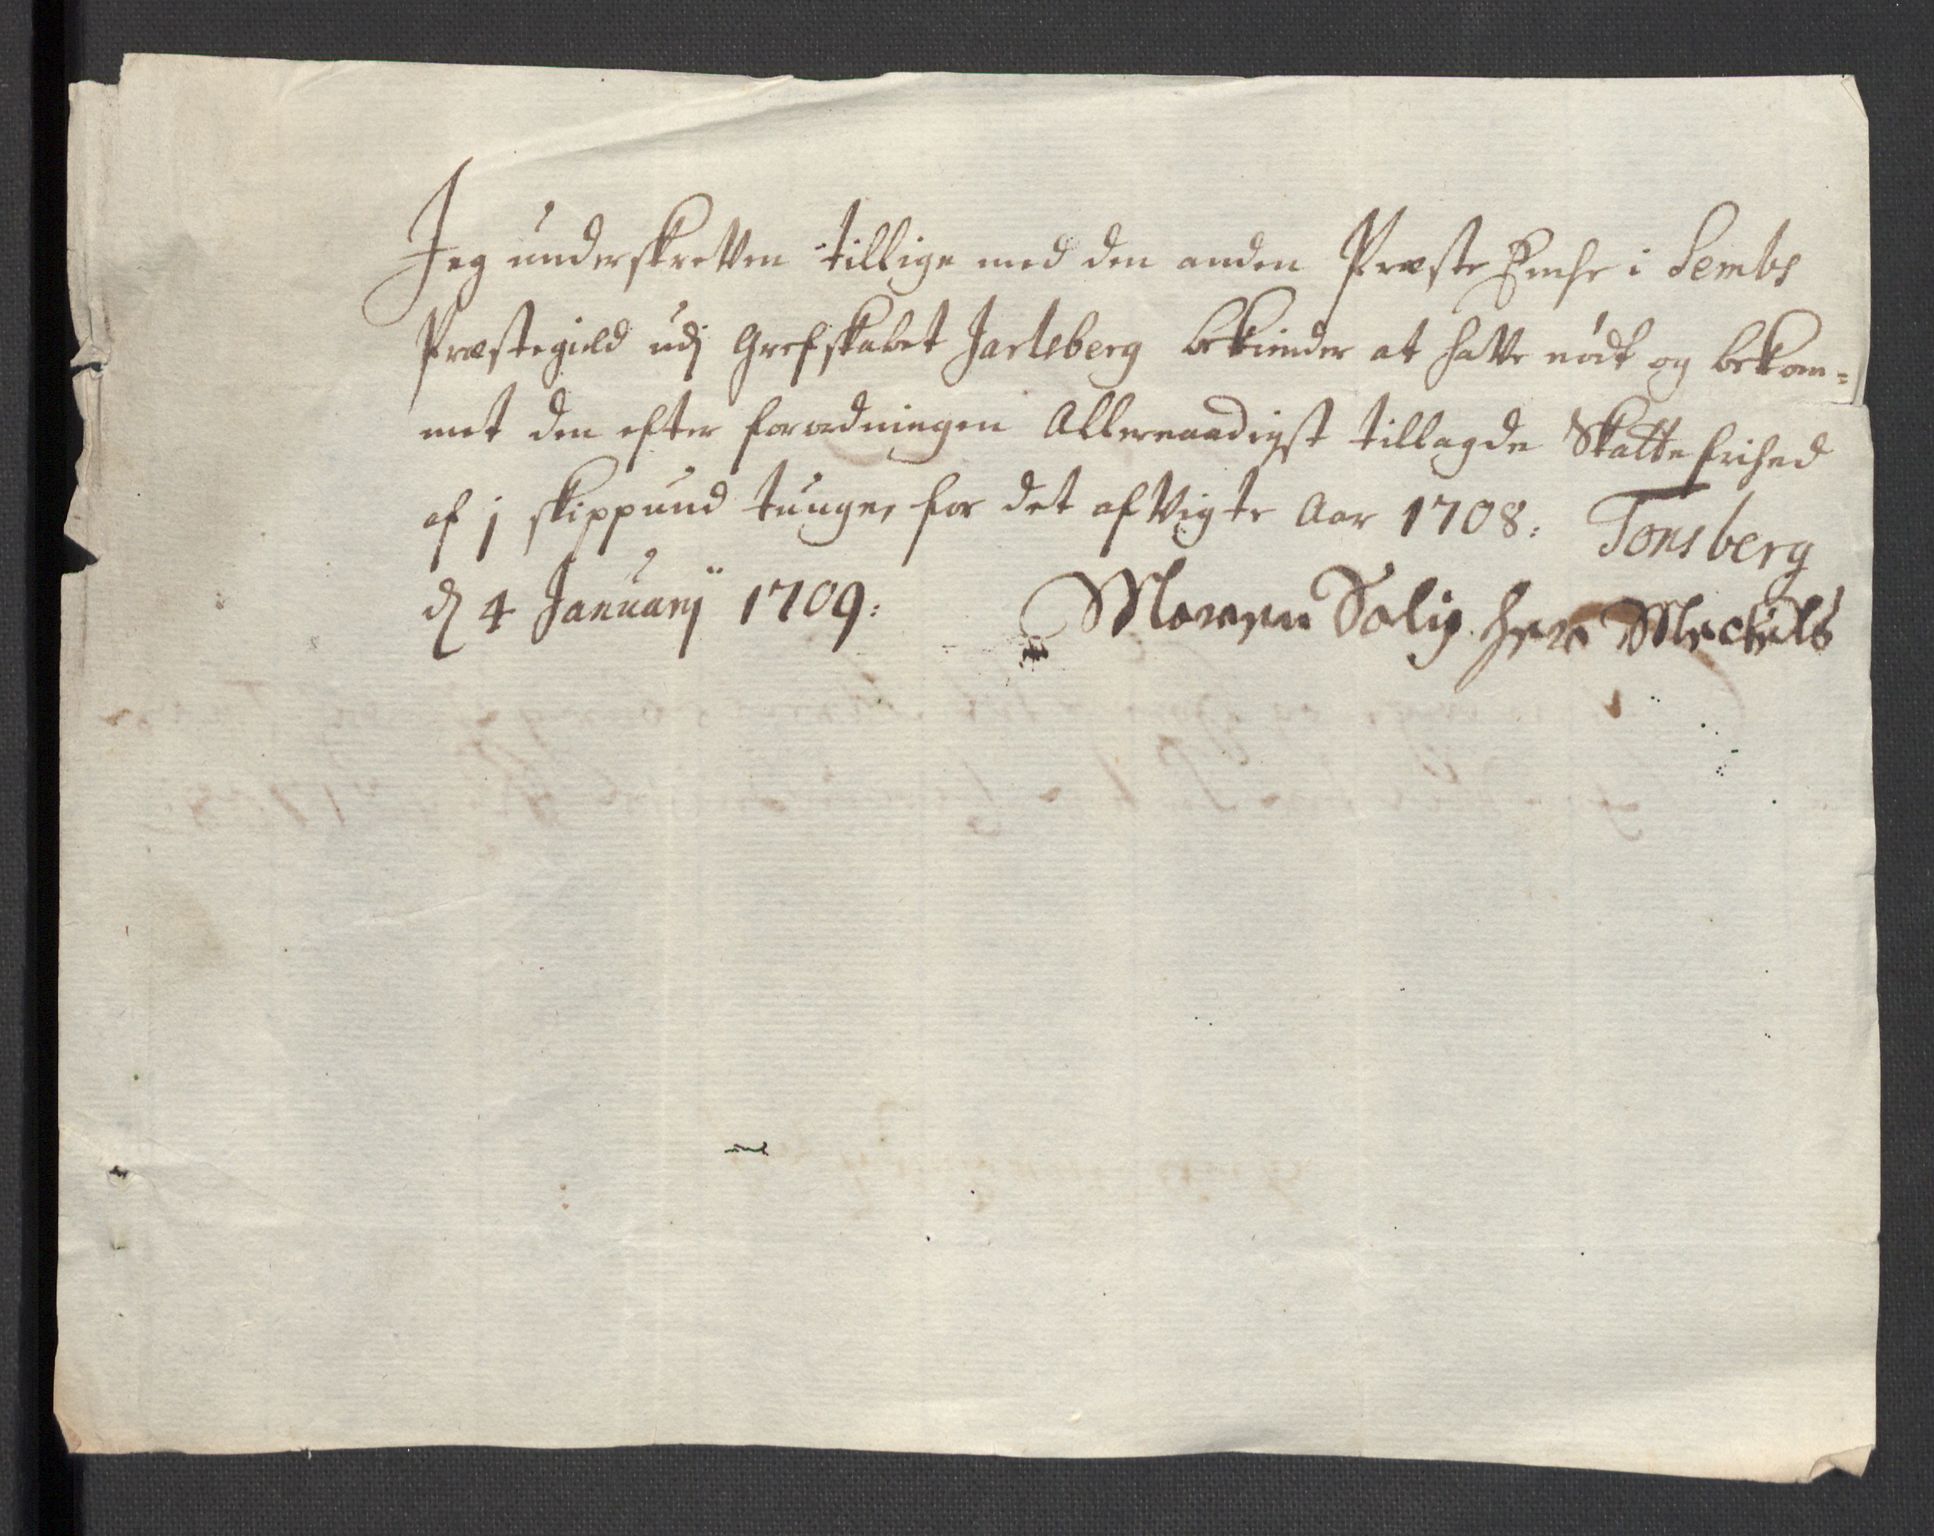 Jeg underskrefven tillige med den anden Præste Enche i Sembs
Præstegield udj Grefskabet Jarlsberg bekiender at hafve nödt og bekom=
met den efter forordningen Allernaadigst tillagde Skatte frihed
af j skippund tunge, for det afvigte Aar 1708: Tonsberg
d 4 Januarij 1709:
Maren Salig her Mectels